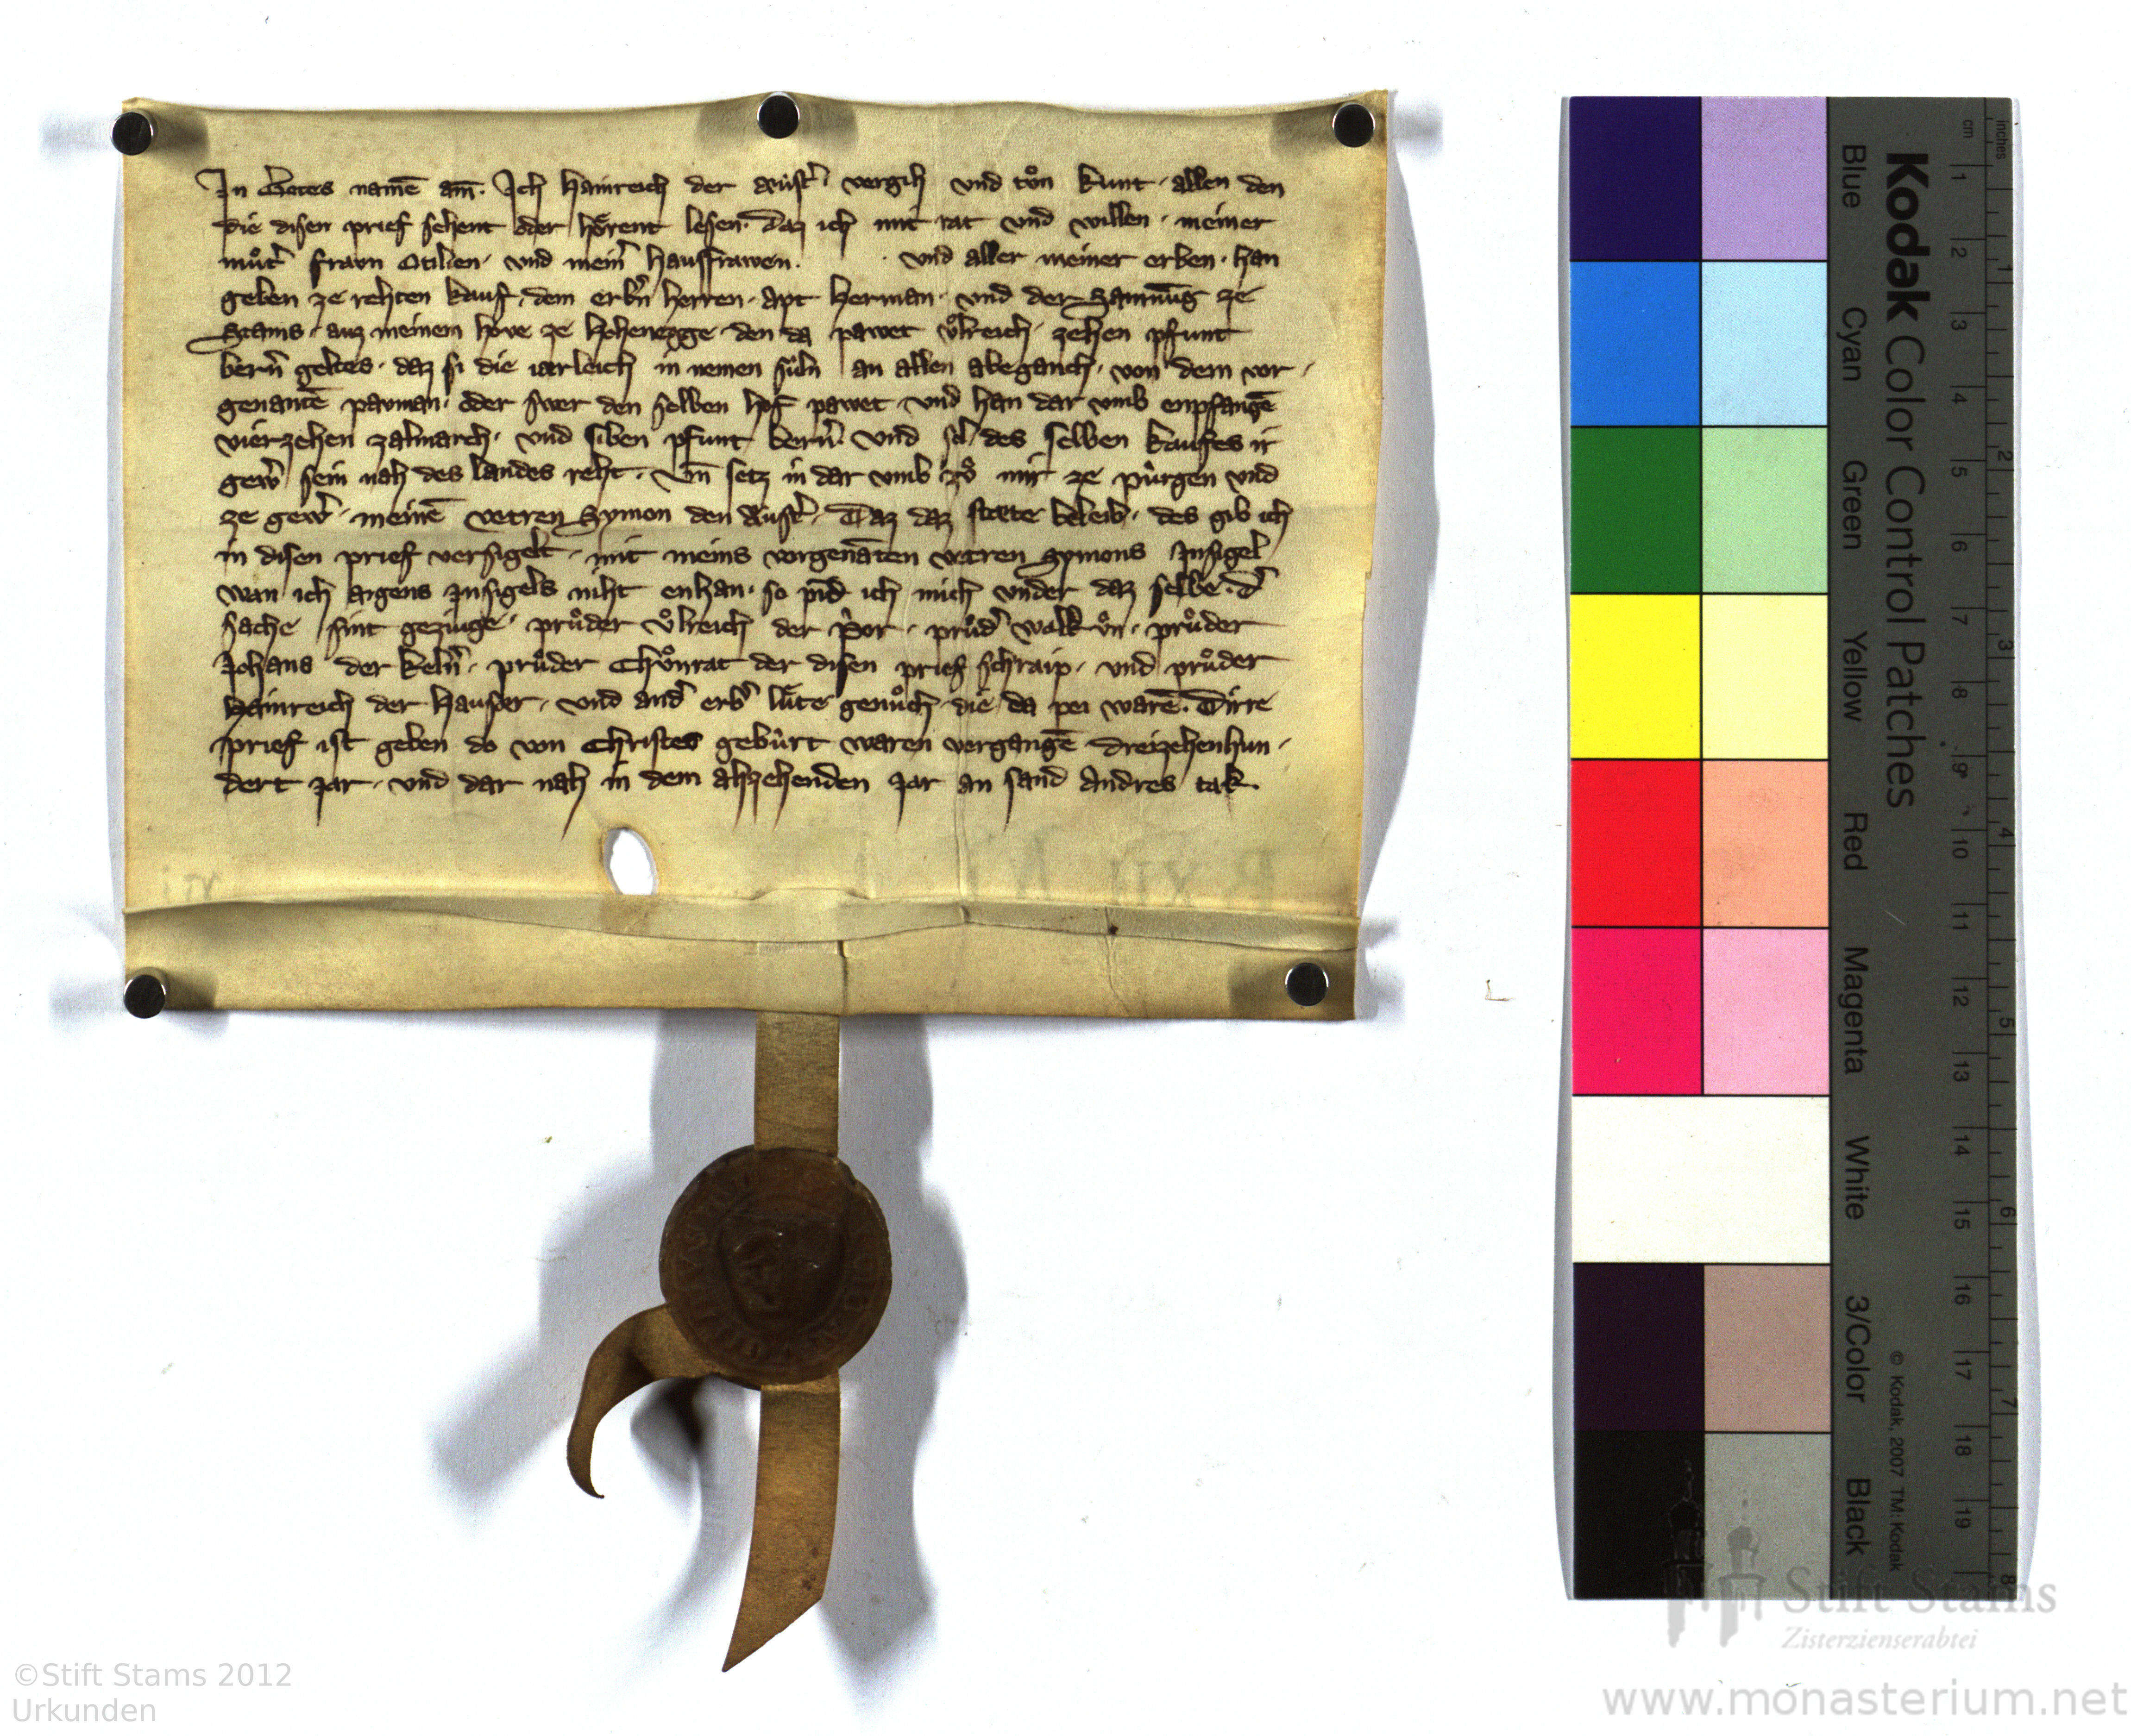 In Gotes namē am̄. Ich Hainreich der vergih vnd tuͦn kunt allen den
die disen prief sehent oder hoͤrent lesen. Daz ich mit rat vnd willen meiner
muͦt̄ fravn Otilien. vnd mein̄ hausfrawen. . vnd aller meiner erben. han
geben ze rehten kauf. dem erb̄n herren. apt Herman. vnd der Samnūg ze
Stams. auz meinem hove ze Hohenegge den da pawet vͦlreich. zehen pfunt
bern̄ geltes. daz si die iærleich in nemen suͤln an allen abeganch. von dem vor-
genantē pauman. oder swer den selben hof pawet. vnd han dar vmb enpfangē
vierzehen zalmarch. vnd siben pfunt bern̄. vnd sol des selben kaufes ir
gew̄ sein nah des landes reht. Vn̄ setz in dar vmb zuͦ mir ze puͤrgen vnd
ze gew̄. meinē vetren Symon den Daz daz stæte beleib. des gib ich
in disen prief versigelt. mit meins vorgenāten vetren Symons Insigel
wan ich aigens Insigels niht enhan. so pind ich mich vnder daz selbe. D̄
sache sint geziuge. pruͦder vͦlreich der p̄or. pruͦd̄ walkuͦn. pruͦder
Johans der keln̄. pruͦder Chuͦnrat der disen prief schraip. vnd pruͦder
Hainreich der Hauser. vnd and̄ erb̄ luͤte genuͦch die da pei warē. Dirre
prief ist geben do von Christes gebuͤrt waren vergangē dreizehenhun-
dert jar. vnd dar nah in dem ahzehenden jar an sand Andres tak.
Kodak Color Control Patches
Blue Cyan Green Yellow Red Magenta White 3/Color Black
© Kodak, 2007 TM: Kodak
cm 1 2 3 4 5 6 7 8 9 10 11 12 13 14 15 16 17 18 19
inches 1 2 3 4 5 6 7 8
Stift Stams
Zisterzienserabtei
©Stift Stams 2012
Urkunden
www.monasterium.net